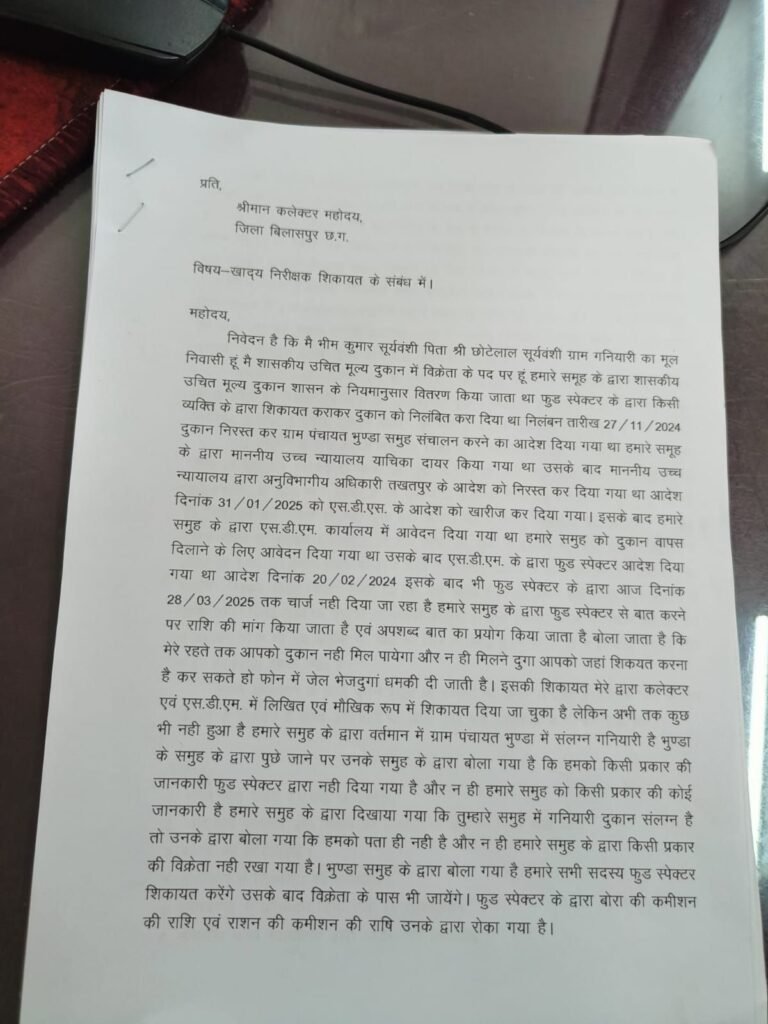 प्रति,
श्रीमान कलेक्टर महोदय,
जिला बिलासपुर छ.ग.
विषय–खाद्य निरीक्षक शिकायत के संबंध में।
महोदय,
निवेदन है कि मै भीम कुमार सूर्यवंशी पिता श्री छोटेलाल सूर्यवंशी ग्राम गनियारी का मूल
निवासी हूं मै शासकीय उचित मूल्य दुकान में विक्रेता के पद पर हूं हमारे समूह के द्वारा शासकीय
उचित मूल्य दुकान शासन के नियमानुसार वितरण किया जाता था फुड स्पेक्टर के द्वारा किसी
व्यक्ति के द्वारा शिकायत कराकर दुकान को निलंबित करा दिया था निलंबन तारीख 27/11/2024
दुकान निरस्त कर ग्राम पंचायत भुण्डा समुह संचालन करने का आदेश दिया गया था हमारे समूह
के द्वारा माननीय उच्च न्यायालय याचिका दायर किया गया था उसके बाद माननीय उच्च
न्यायालय द्वारा अनुविभागीय अधिकारी तखतपुर के आदेश को निरस्त कर दिया गया था आदेश
दिनांक 31/01/2025 को एस.डी.एस. के आदेश को खारीज कर दिया गया। इसके बाद हमारे
समुह के द्वारा एस.डी.एम. कार्यालय में आवेदन दिया गया था हमारे समुह को दुकान वापस
दिलाने के लिए आवेदन दिया गया था उसके बाद एस.डी.एम. के द्वारा फुड स्पेक्टर आदेश दिया
गया था आदेश दिनांक 20/02/2024 इसके बाद भी फुड स्पेक्टर के द्वारा आज दिनांक
28/03/2025 तक चार्ज नही दिया जा रहा है हमारे समुह के द्वारा फुड स्पेक्टर से बात करने
पर राशि की मांग किया जाता है एवं अपशब्द बात का प्रयोग किया जाता है बोला जाता है कि
मेरे रहते तक आपको दुकान नही मिल पायेगा और न ही मिलने दुगा आपको जहां शिकयत करना
है कर सकते हो फोन में जेल भेजदुगां धमकी दी जाती है। इसकी शिकायत मेरे द्वारा कलेक्टर
एवं एस.डी.एम. में लिखित एवं मौखिक रूप में शिकायत दिया जा चुका है लेकिन अभी तक कुछ
भी नही हुआ है हमारे समुह के द्वारा वर्तमान में ग्राम पंचायत भुण्डा में संलग्न गनियारी है भुण्डा
के समुह के द्वारा पुछे जाने पर उनके समुह के द्वारा बोला गया है कि हमको किसी प्रकार की
जानकारी फुड स्पेक्टर द्वारा नही दिया गया है और न ही हमारे समुह को किसी प्रकार की कोई
जानकारी है हमारे समुह के द्वारा दिखाया गया कि तुम्हारे समुह में गनियारी दुकान संलग्न है
तो उनके द्वारा बोला गया कि हमको पता ही नही है और न ही हमारे समुह के द्वारा किसी प्रकार
की विक्रेता नही रखा गया है। भुण्डा समुह के द्वारा बोला गया है हमारे सभी सदस्य फुड स्पेक्टर
शिकायत करेंगे उसके बाद विक्रेता के पास भी जायेंगे। फुड स्पेक्टर के द्वारा बोरा की कमीशन
की राशि एवं राशन की कमीशन की राषि उनके द्वारा रोका गया है।